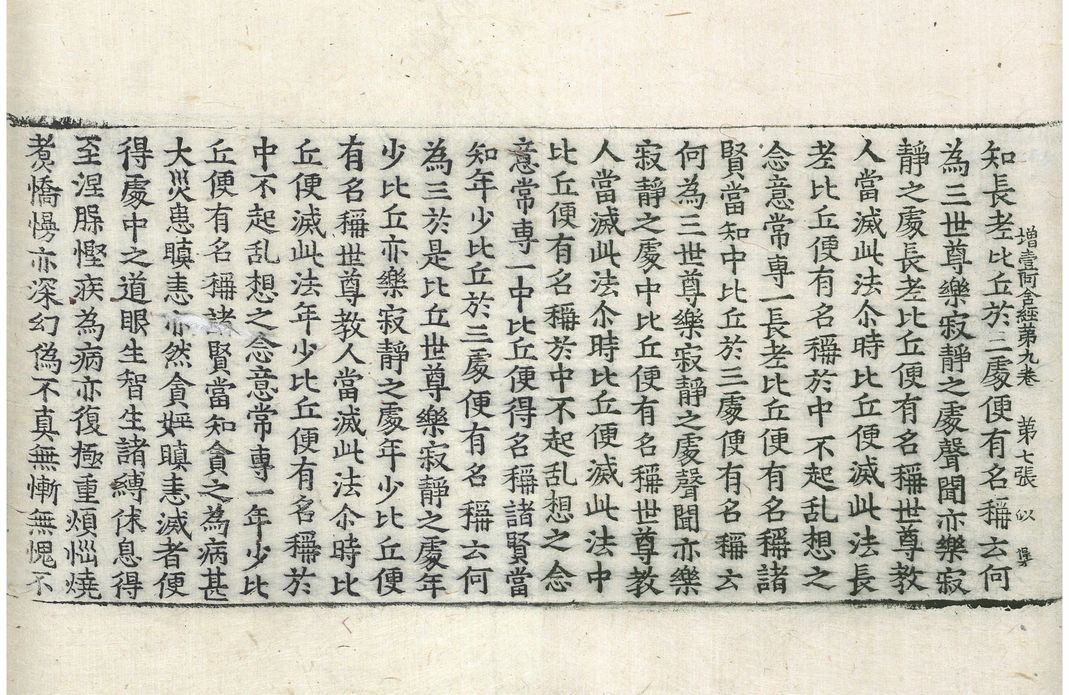 增壹阿含經第九卷　第七張　似
知長老比丘於三處便有名稱云何
為三世尊樂寂靜之處聲聞亦樂寂
靜之處長老比丘便有名稱世尊教
人當滅此法尒時比丘便滅此法長
老比丘便有名稱於中不起乱想之
念意常専一長老比丘便有名稱諸
賢當知中比丘於三處便有名稱云
何為三世尊樂寂靜之處聲聞亦樂
寂靜之處中比丘便有名稱世尊教
人當滅此法尒時比丘便滅此法中
比丘便有名稱於中不起乱想之念
意常専一中比丘便得名稱諸賢當
知年少比丘於三處便有名稱云何
為三於是比丘世尊樂寂靜之處年
少比丘亦樂寂靜之處年少比丘便
有名稱世尊教人當滅此法尒時比
丘便滅此法年少比丘便有名稱於
中不起乱想之念意常専一年少比
丘便有名稱諸賢當知貪之為病甚
大災患瞋恚亦然貪婬瞋恚滅者便
得處中之道眼生智生諸縛休息得
至涅槃慳疾為病亦復極重煩惱燒
煑憍慢亦深幻偽不真無慚無愧不